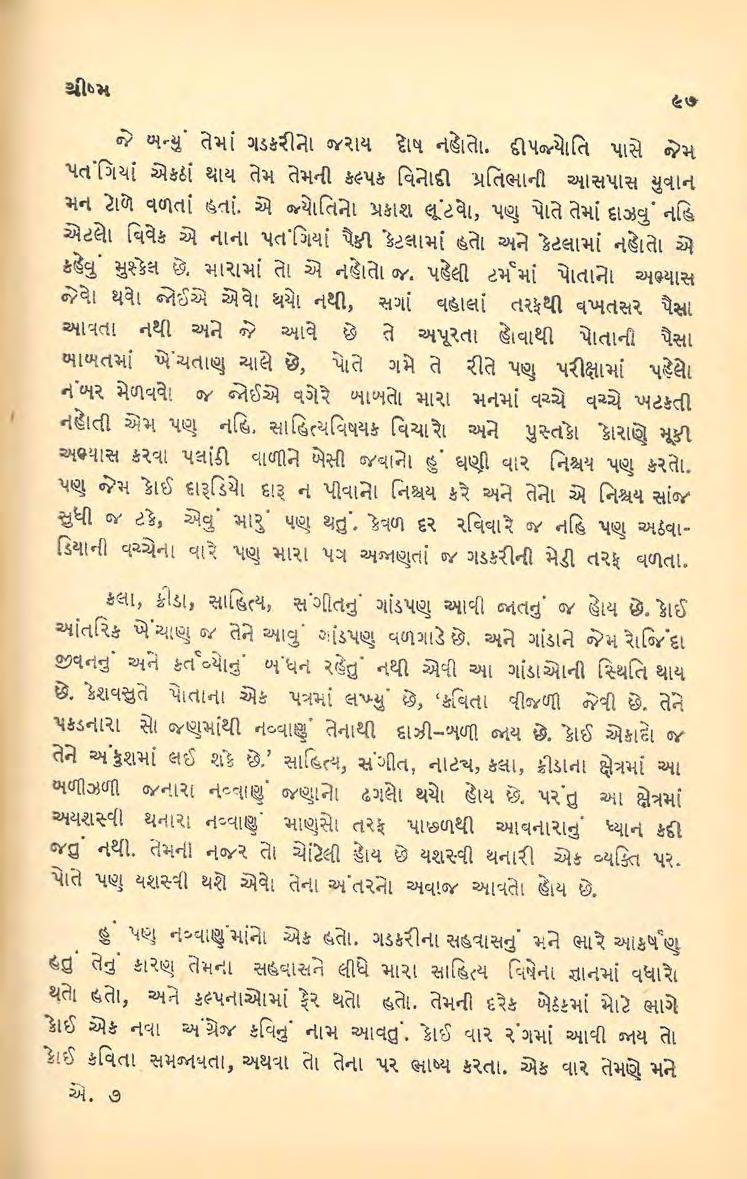 ગ્રીષ્મ
૯૭
જે બન્યું તેમાં ગડકરીનો જરાય દોષ નહોતો. દીપજ્યોતિ પાસે જેમ
પતંગિયાં એકઠાં થાય તેમ તેમની કલ્પક વિનોદી પ્રતિભાની આસપાસ યુવાન
મન ટોળે વળતાં હતાં. એ જ્યોતિનો પ્રકાશ લૂંટવો, પણ પોતે તેમાં દાઝવું નહિ
એટલો વિવેક એ નાના પતંગિયાં પૈકી કેટલામાં હતો અને કેટલામાં નહોતો એ
કહેવું મુશ્કેલ છે. મારામાં તો એ નહોતો જ. પહેલી ટર્મમાં પોતાનો અભ્યાસ
જેવો થવો જોઈએ એવો થયો નથી, સગાં વહાલાં તરફથી વખતસર પૈસા
આવતા નથી અને જે આવે છે તે અપૂરતા હોવાથી પોતાની પૈસા
બાબતમાં ખેંચતાણ ચાલે છે, પોતે ગમે તે રીતે પણ પરીક્ષામાં પહેલો
નંબર મેળવવો જ જોઈએ વગેરે બાબતો મારા મનમાં વચ્ચે વચ્ચે ખટકતી
નહોતી એમ પણ નહિ. સાહિત્યવિષયક વિચારો અને પુસ્તકો કોરાણે મૂકી
અભ્યાસ કરવા પલાંઠી વાળીને બેસી જવાનો હું ઘણી વાર નિશ્ચય પણ કરતો.
પણ જેમ કોઈ દારૂડિયો દારૂ ન પીવાનો નિશ્ચય કરે અને તેનો એ નિશ્ચય સાંજ
સુધી જ ટકે, એવું મારું પણ થતું. કેવળ દર રવિવારે જ નહિ પણ અઠવા-
ડિયાની વચ્ચેના વારે પણ મારા પગ અજાણતાં જ ગડકરીની મેડી તરફ વળતા.
કલા, ક્રીડા, સાહિત્ય, સંગીતનું ગાંડપણ આવી જાતનું જ હોય છે. કોઈ
આંતરિક ખેંચાણ જ તેને આવું ગાંડપણ વળગાડે છે. અને ગાંડાને જેમ રોજિંદા
જીવનનું અને કર્તવ્યોનું બંધન રહેતું નથી એવી આ ગાંડાઓની સ્થિતિ થાય
છે. કેશવસુતે પોતાના એક પત્રમાં લખ્યું છે, ‘કવિતા વીજળી જેવી છે. તેને
પકડનારા સો જણમાંથી નવ્વાણું તેનાથી દાઝી-બળી જાય છે. કોઈ એકાદો જ
તેને અંકુશમાં લઈ શકે છે.’ સાહિત્ય, સંગીત, નાટ્ય, કલા, ક્રીડાના ક્ષેત્રમાં આ
બળીઝળી જનારા નવ્વાણું જણાનો ઢગલો થયો હોય છે. પરંતુ આ ક્ષેત્રમાં
અયશસ્વી થનારા નવ્વાણું માણસો તરફ પાછળથી આવનારાનું ધ્યાન કદી
જતું નથી. તેમની નજર તો ચોંટેલી હોય છે યશસ્વી થનારી એક વ્યક્તિ પર.
પોતે પણ યશસ્વી થશે એવો તેના અંતરનો અવાજ આવતો હોય છે.
હું પણ નવ્વાણુંમાંનો એક હતો. ગડકરીના સહવાસનું મને ભારે આકર્ષણ
હતું તેનું કારણ તેમના સહવાસને લીધે મારા સાહિત્ય વિષેના જ્ઞાનમાં વધારો
થતો હતો, અને કલ્પનાઓમાં ફેર થતો હતો. તેમની દરેક બેઠકમાં મોટે ભાગે
કોઈ એક નવા અંગ્રેજ કવિનું નામ આવતું. કોઈ વાર રંગમાં આવી જાય તો
કોઈ કવિતા સમજાવતા, અથવા તો તેના પર ભાષ્ય કરતા. એક વાર તેમણે મને
એ. ૭